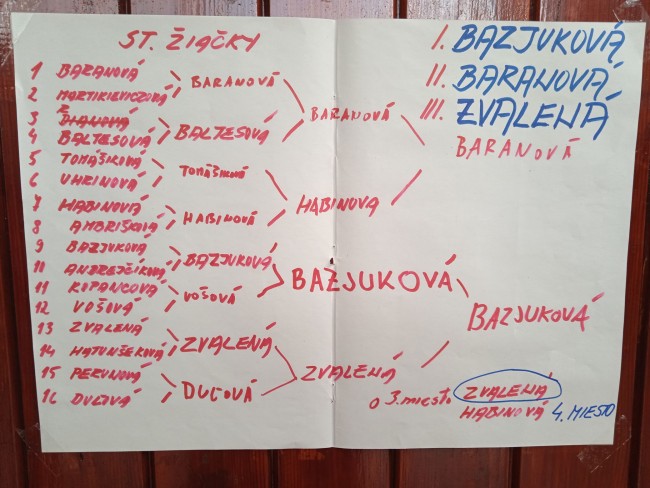 ST. ŽIAČKY
1 BARANOVÁ
2 MARTIKIEVICZOVÁ
3 DIANOVÁ
4 BALTESOVÁ
5 TOMÁŠIKOVÁ
6 UHRINOVÁ
7 HABINOVÁ
8 AMBRIŠKOVÁ
9 BAZJUKOVÁ
10 ANDREJČIKOVÁ
11 KOPANCOVÁ
12 VOŠOVÁ
13 ZVALENÁ
14 HATUNŠEKOVÁ
15 PERUNOVÁ
16
BARANOVÁ
BALTESOVÁ
TOMÁŠIKOVÁ
HABINOVÁ
BAZJUKOVÁ
VOŠOVÁ
ZVALENÁ
BARANOVÁ
HABINOVA
BAZJUKOVÁ
ZVALENÁ
BARANOVÁ
BAZJUKOVÁ
I. BAZJUKOVÁ
II. BARANOVÁ
III. ZVALENÁ
O 3. miesto ZVALENÁ
HABINOVÁ 4. MIESTO